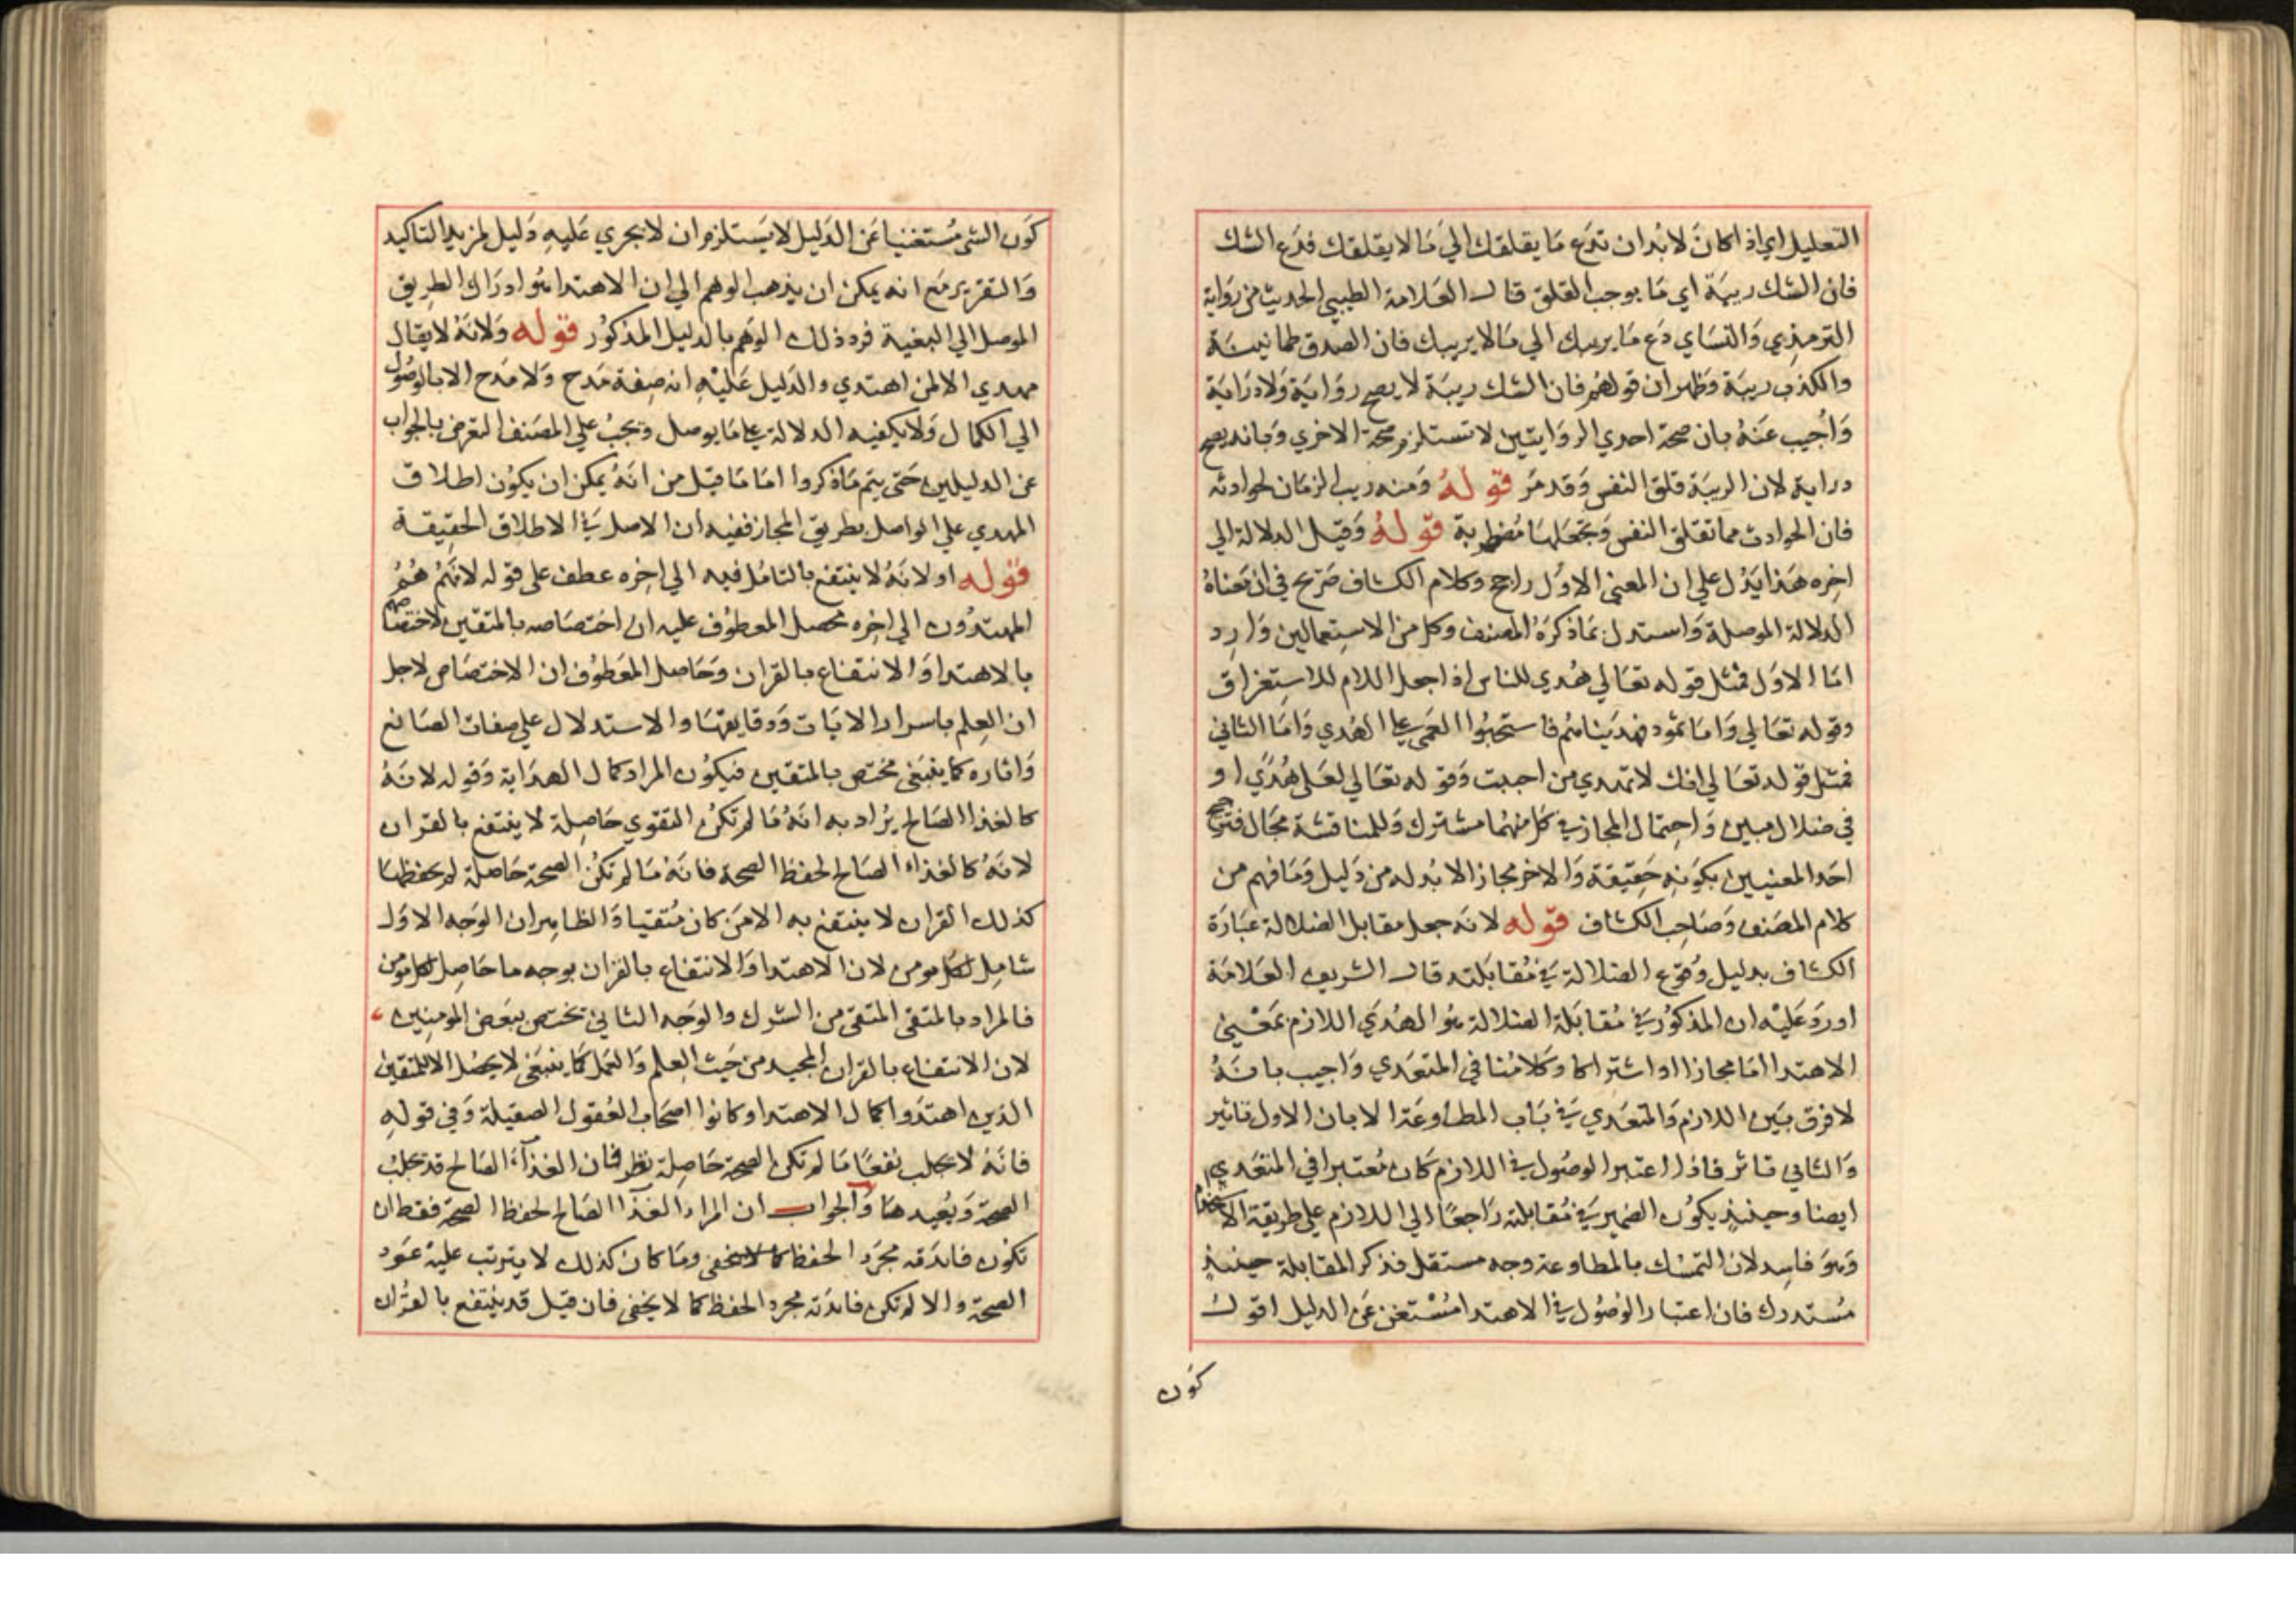 التعليل اي اذا كان لا بد ان تدع ما يقلقك الي ما لا يقلقك فدع الشك
فان الشك ريبة اي ما يوجب القلق قال العلامة الطيبي الحديث من رواية
الترمذي والنساي دع ما يريبك الي ما لا يريبك فان الصدق طمانينة
والكذب ريبة وظهر ان قولهم فان الشك ريبة لا يصح رواية ولا دراية
وأجيب عنه بان صحة احدي الروايتين لا تستلزم صحة الاخري وبانه يصح
دراية لان الريبة قلق النفس وقد مر قوله ومنه ريب الزمان لحوادثه
فان الحوادث مما تقلق النفس وتجعلها مضطربة قوله وقيل الدلالة الي
اخره هذا يدل علي ان المعني الاول راجح وكلام الكشاف صريح في ان معناه
الدلالة الموصلة واستدل بما ذكره المصنف وكل من الاستعمالين وارد
اما الاول فمثل قوله تعالي هدي للناس اذا جعل اللام للاستغراق
وقوله تعالي واما ثمود فهديناهم فاستحبوا العمي علي الهدي واما الثاني
فمثل قوله تعالي انك لا تهدي من احببت وقوله تعالي لعلي هدي او
في ضلال مبين واحتمال المجاز في كل منهما مشترك وللمناقشة مجال فترجيح
احد المعنيين بكونه حقيقة والاخر مجازا لا بد له من دليل وما فهم من
كلام المصنف وصاحب الكشاف قوله لانه جعل مقابل الضلالة عبارة
الكشاف بدليل وقوع الضلالة في مقابلته قال الشريف العلامة
اورد عليه ان المذكور في مقابلة الضلالة هو الهدي اللازم بمعني
الاهتدا اما مجازا او اشتراكا وكلامنا في المتعدي واجيب بانه
لا فرق بين اللازم والمتعدي في باب المطاوعة الا بان الاول تاثير
والثاني تاثر فاذا اعتبر الوصول في اللازم كان معتبرا في المتعدي
ايضا وحينئذ يكون الضمير في مقابلته راجعا الي اللازم علي طريقة الاستخدام
وهو فاسد لان التمسك بالمطاوعة وجه مستقل فذكر المقابلة حينئذ
مستدرك فان اعتبار الوصول في الاهتدا مستغن عن الدليل اقول
كون
كون الشي مستغنيا عن الدليل لا يستلزم ان لا يجري عليه دليل لمزيد التاكيد
والتقرير مع انه يمكن ان يذهب الوهم الي ان الاهتدا هو ادراك الطريق
الموصل الي البغية فرد ذلك الوهم بالدليل المذكور قوله ولانه لا يقال
مهدي الا لمن اهتدي والدليل عليه انه صفة مدح ولا مدح الا بالوصول
الي الكمال ولا يكفيه الدلالة علي ما يوصل ويجب علي المصنف التعرض بالجواب
عن الدليلين حتي يتم ما ذكروا اما ما قيل من انه يمكن ان يكون اطلاق
المهدي علي الواصل بطريق المجاز ففيه ان الاصل في الاطلاق الحقيقة
قوله او لانه لا ينتفع بالتامل فيه الي اخره عطف علي قوله لانهم هم
المهتدون الي اخره محصل المعطوف عليه ان اختصاصه بالمتقين لاختصاصهم
بالاهتدا والانتفاع بالقران وحاصل المعطوف ان الاختصاص لاجل
ان العلم باسرار الايات ودقايقها والاستدلال علي صفات الصانع
واثاره كما ينبغي مختص بالمتقين فيكون المراد كمال الهداية وقوله لانه
كالغذا الصالح يراد به انه ما لم تكن التقوي حاصلة لا ينتفع بالقران
لانه كالغذاء الصالح لحفظ الصحة فانه ما لم تكن الصحة حاصلة لم يحفظها
كذلك القران لا ينتفع به الا من كان متقيا والظاهر ان الوجه الاول
شامل لكل مومن لان الاهتدا والانتفاع بالقران بوجه ما حاصل لكل مومن
فالمراد بالمتقي المتقي من الشرك والوجه الثاني يختص ببعض المومنين
لان الانتفاع بالقران المجيد من حيث العلم والعمل كما ينبغي لا يحصل الا للمتقين
الذين اهتدوا كمال الاهتدا وكانوا اصحاب العقول الصقيلة وفي قوله
فانه لا يجلب نفعا ما لم تكن الصحة حاصلة نظر فان الغذآء الصالح قد يجلب
الصحة ويعيدها والجواب ان المراد الغذا الصالح لحفظ الصحة فقط ان
تكون فائدته مجرد الحفظ كما لا يخفي وما كان كذلك لا يترتب عليه عود
الصحة والا لم تكن فائدته مجرد الحفظ كما لا يخفي فان قيل قد ينتفع بالقران